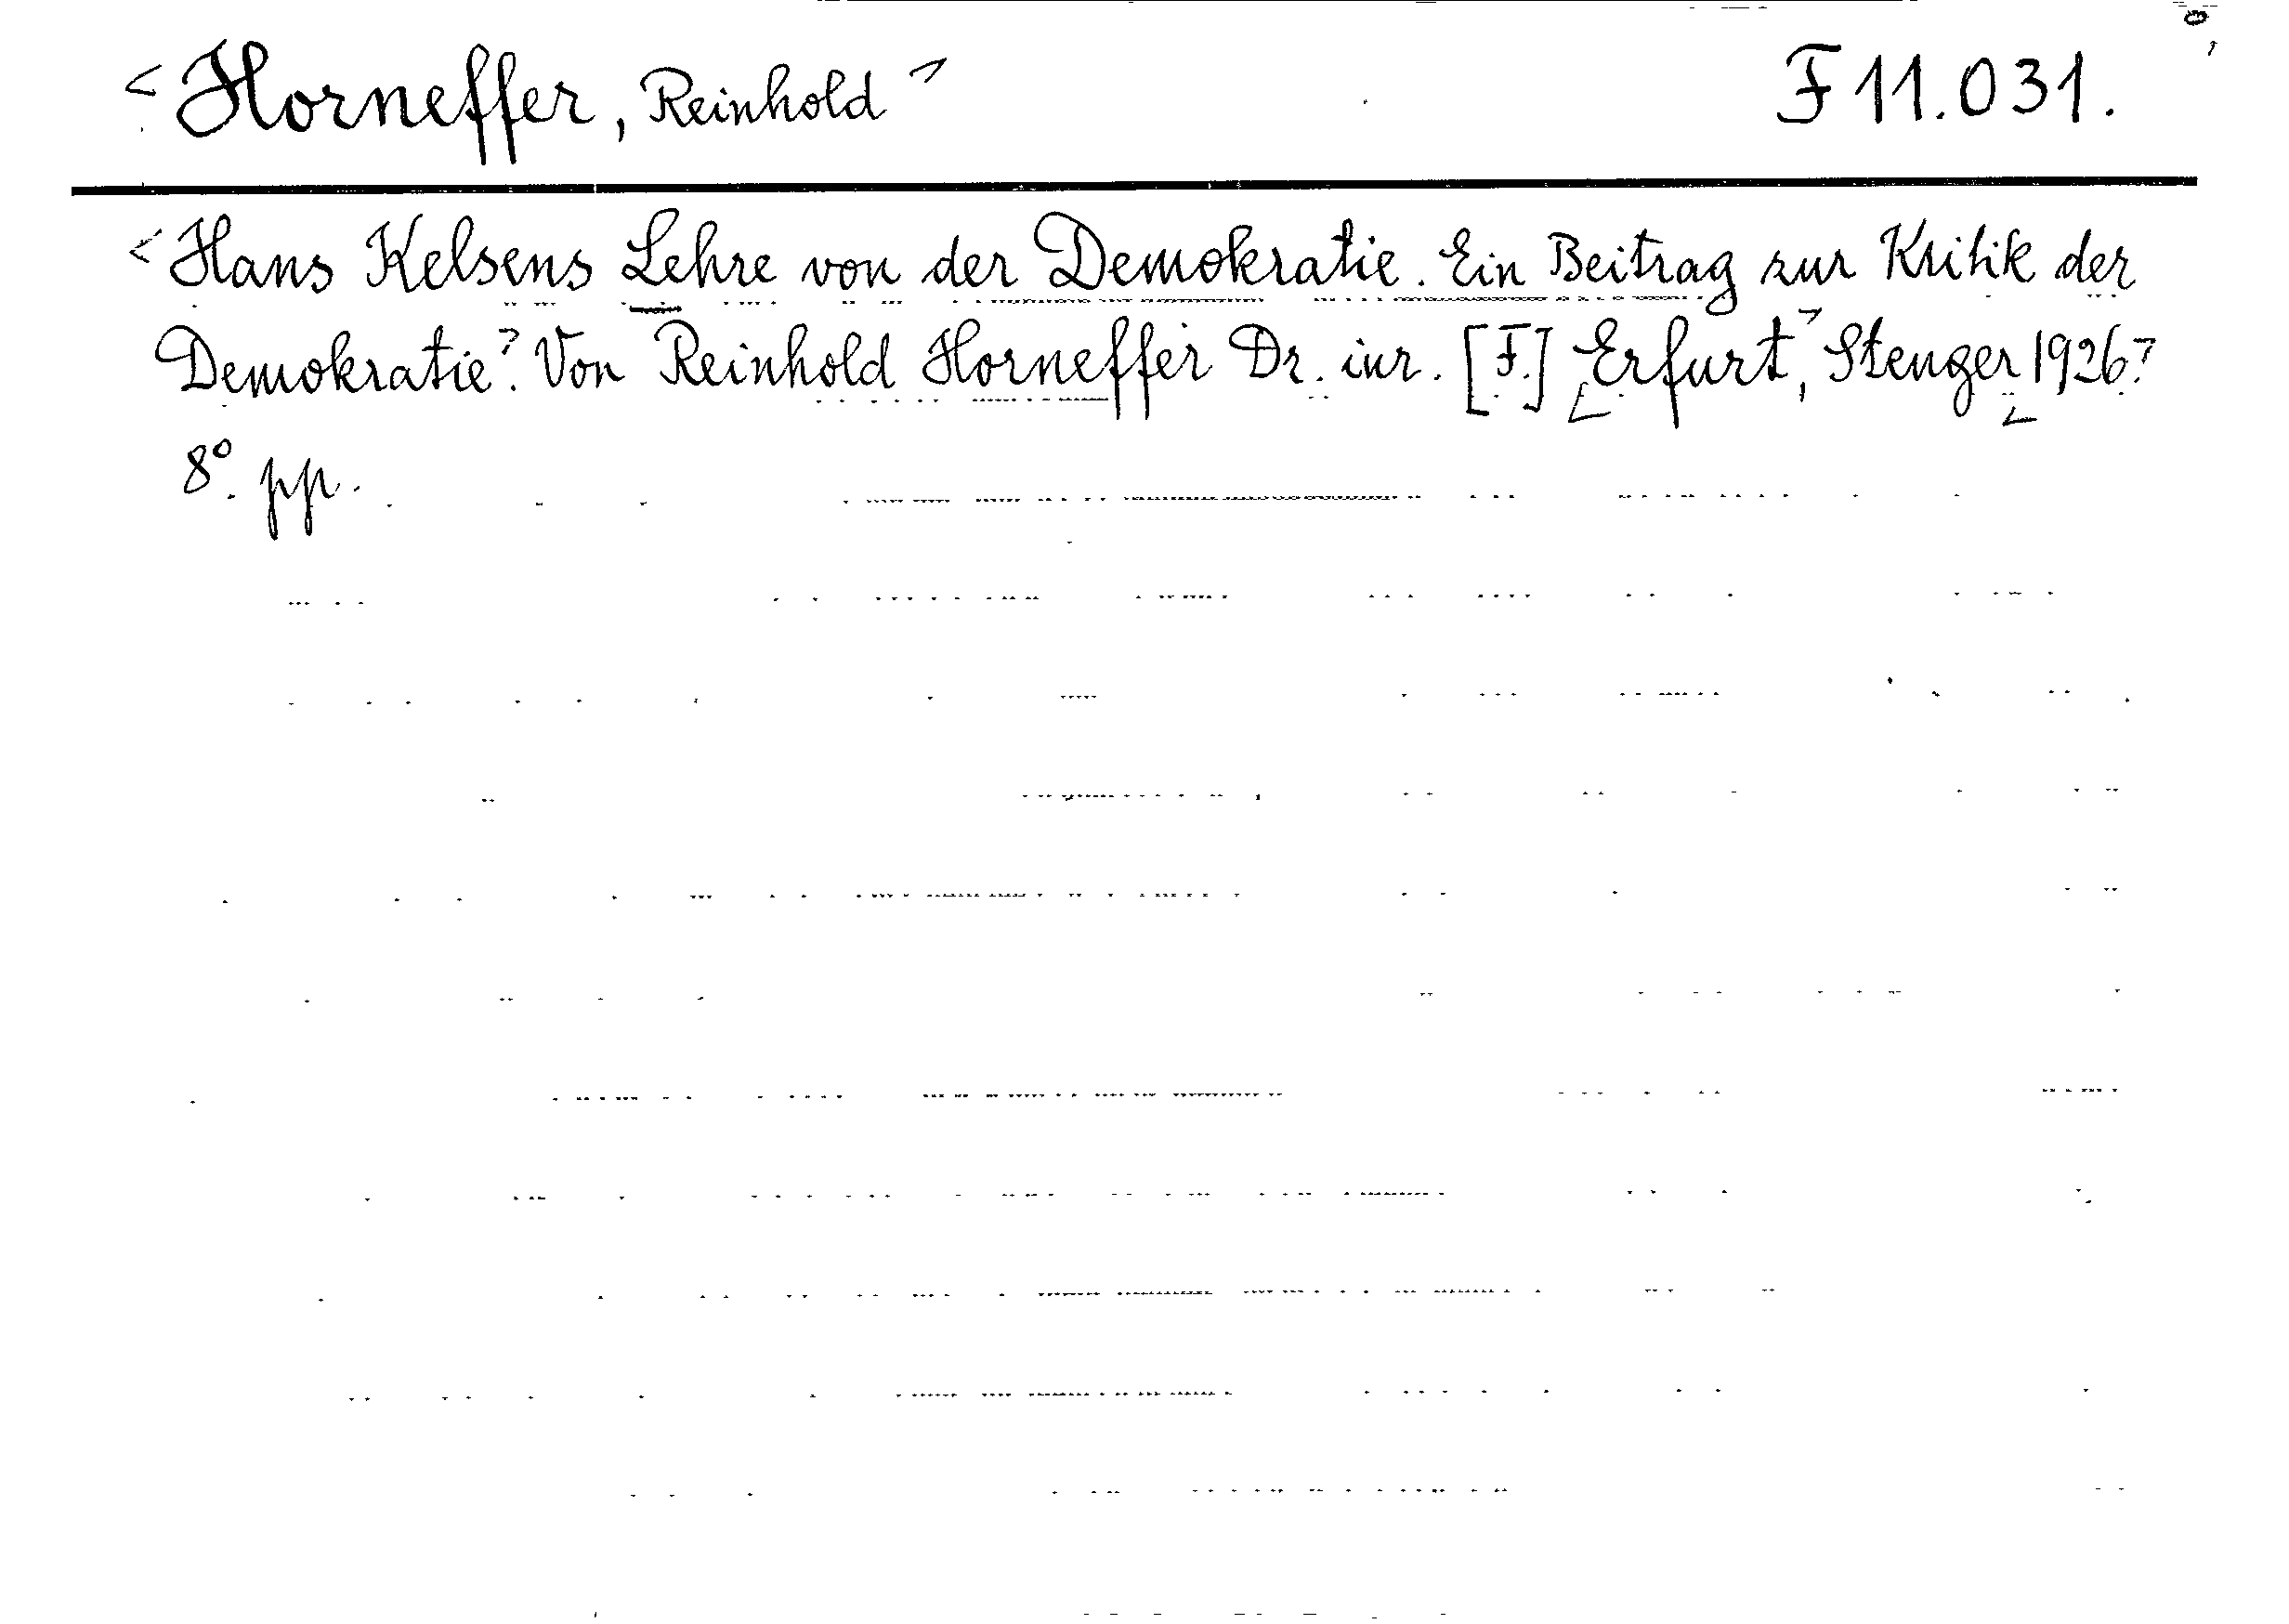 < Horneffer, Reinhold > F 11.031.
< Hans Kelsens Lehre von der Demokratie. Ein Beitrag zur Kritik der
Demokratie>. Von Reinhold Horneffer Dr. iur. [F.] <Erfurt>, Stenger <1926>
8°. pp.